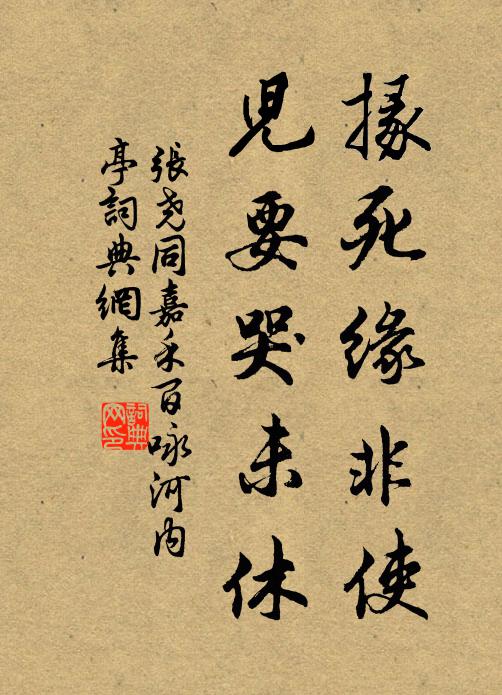 掾死緣非使
兒要哭未休
張堯同嘉禾百咏河内
亭詞典網集
詞典
网印